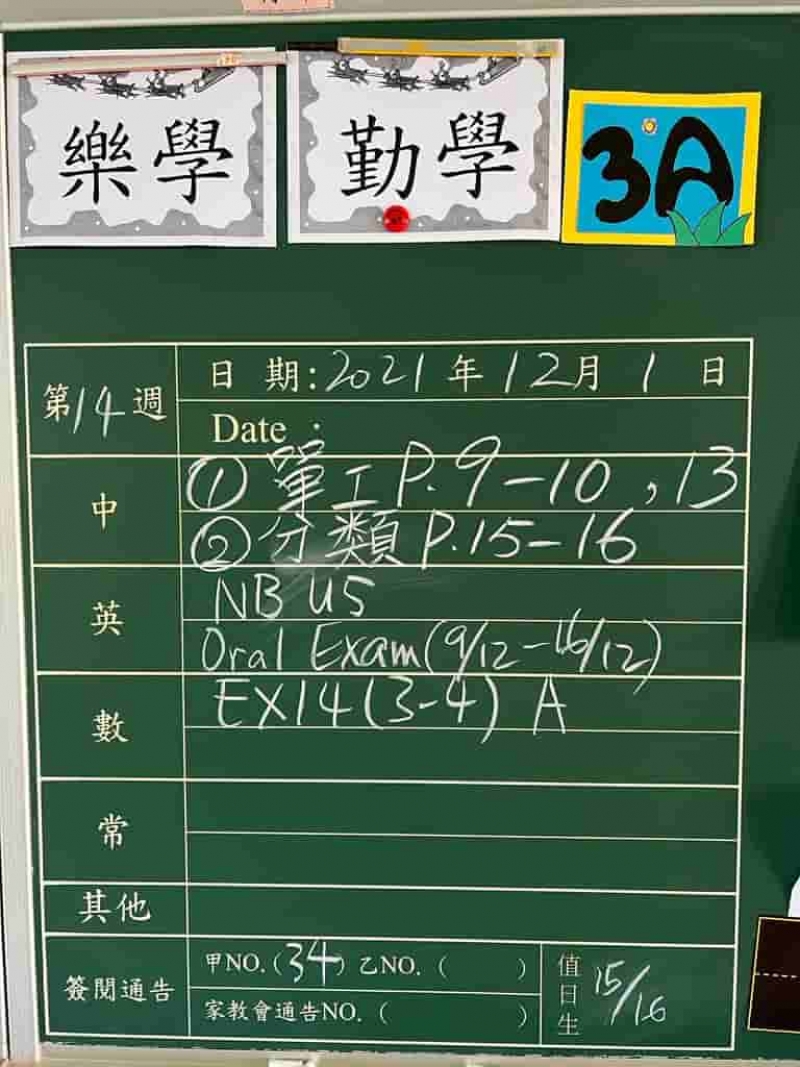 樂學
勤學
3A
第14週
日 期:2021年12月1日
Date :
中
① 單工 P.9-10,13
② 分類 P.15-16
英
NB U5
Oral Exam(9/12-16/12)
數
EX14(3-4) A
常
其他
簽閱通告
甲NO.(34) 乙NO.( )
家教會通告NO.( )
值日生 15/16